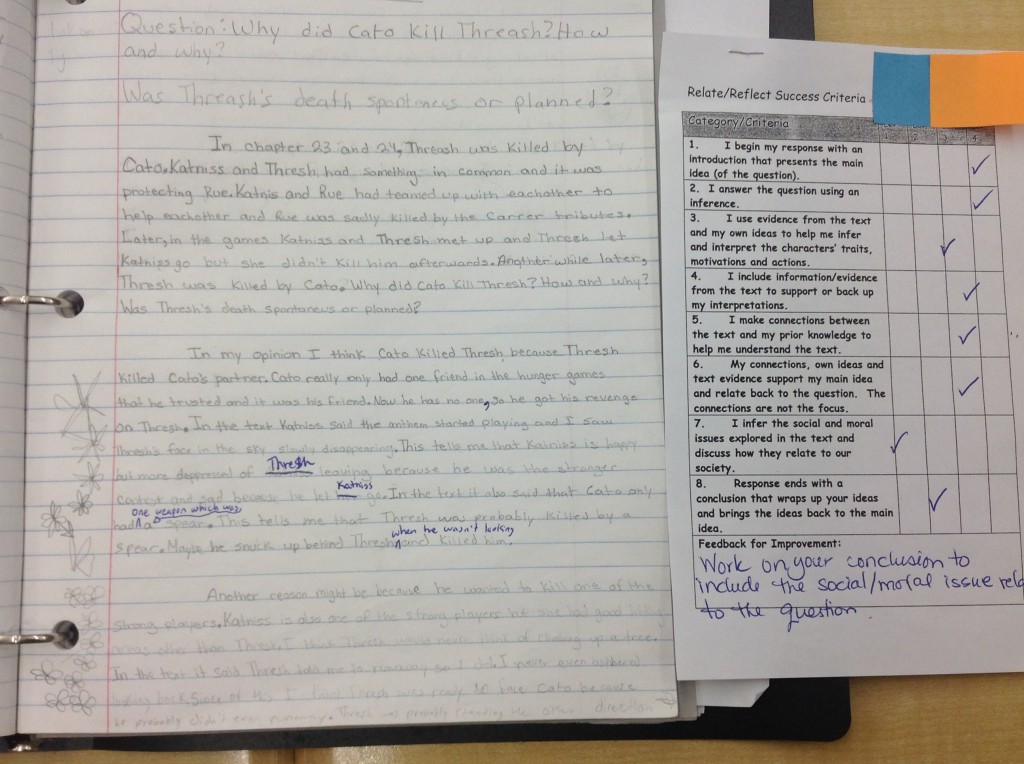 Question: Why did Cato Kill Threash? How
and why?
Was Threash's death spontaneus or planned?
In chapter 23 and 24, Threash was killed by
Cato. Katniss and Thresh, had something in common and it was
protecting Rue. Katnis and Rue had teamed up with eachother to
help eachother and Rue was sadly killed by the Career tributes.
Later, in the games Katniss and Thresh met up and Thresh let
Katniss go but she didn't kill him afterwards. Another while later,
Thresh was killed by Cato. Why did Cato Kill Thresh? How and why?
Was Thresh's death spontaneus or planned?
In my opinion I think Cato killed Thresh, because Thresh
killed Cato's partner. Cato really only had one friend in the hunger games
that he trusted and it was his friend. Now he has no one, so he got his revenge
on Thresh. In the text Katniss said the anthem started playing and I saw
thresh's face in the sky slowly disappearing. This tells me that Katniss is happy
but more depressed of Thresh leaving because he was the stronger
and sad because he let Katniss go. In the text it also said that Cato only
had a one weapon which was spear. This tells me that Thresh was probably killed by a
spear. Maybe he snuck up behind Thresh when he wasn't looking and killed him.
Another reason might be because he wanted to kill one of the
strong players. Katniss is also one of the strong players but she had good hiding
areas other than Thresh. I think Thresh would never think of climbing up a tree.
In the text it said Thresh told me to runaway so I did. I never even bothered
looking back. Since of this I think Thresh was ready to face Cato because
he probably didn't even runaway. Thresh was probably the other direction
Relate/Reflect Success Criteria
Category/Criteria
4
1. I begin my response with an
introduction that presents the main
idea (of the question).
2. I answer the question using an
inference.
3. I use evidence from the text
and my own ideas to help me infer
and interpret the characters' traits,
motivations and actions.
4. I include information/evidence
from the text to support or back up
my interpretations.
5. I make connections between
the text and my prior knowledge to
help me understand the text.
6. My connections, own ideas and
text evidence support my main idea
and relate back to the question. The
connections are not the focus.
7. I infer the social and moral
issues explored in the text and
discuss how they relate to our
society.
8. Response ends with a
conclusion that wraps up your ideas
and brings the ideas back to the main
idea.
Feedback for Improvement:
Work on your conclusion to
include the social/moral issue rela
to the question